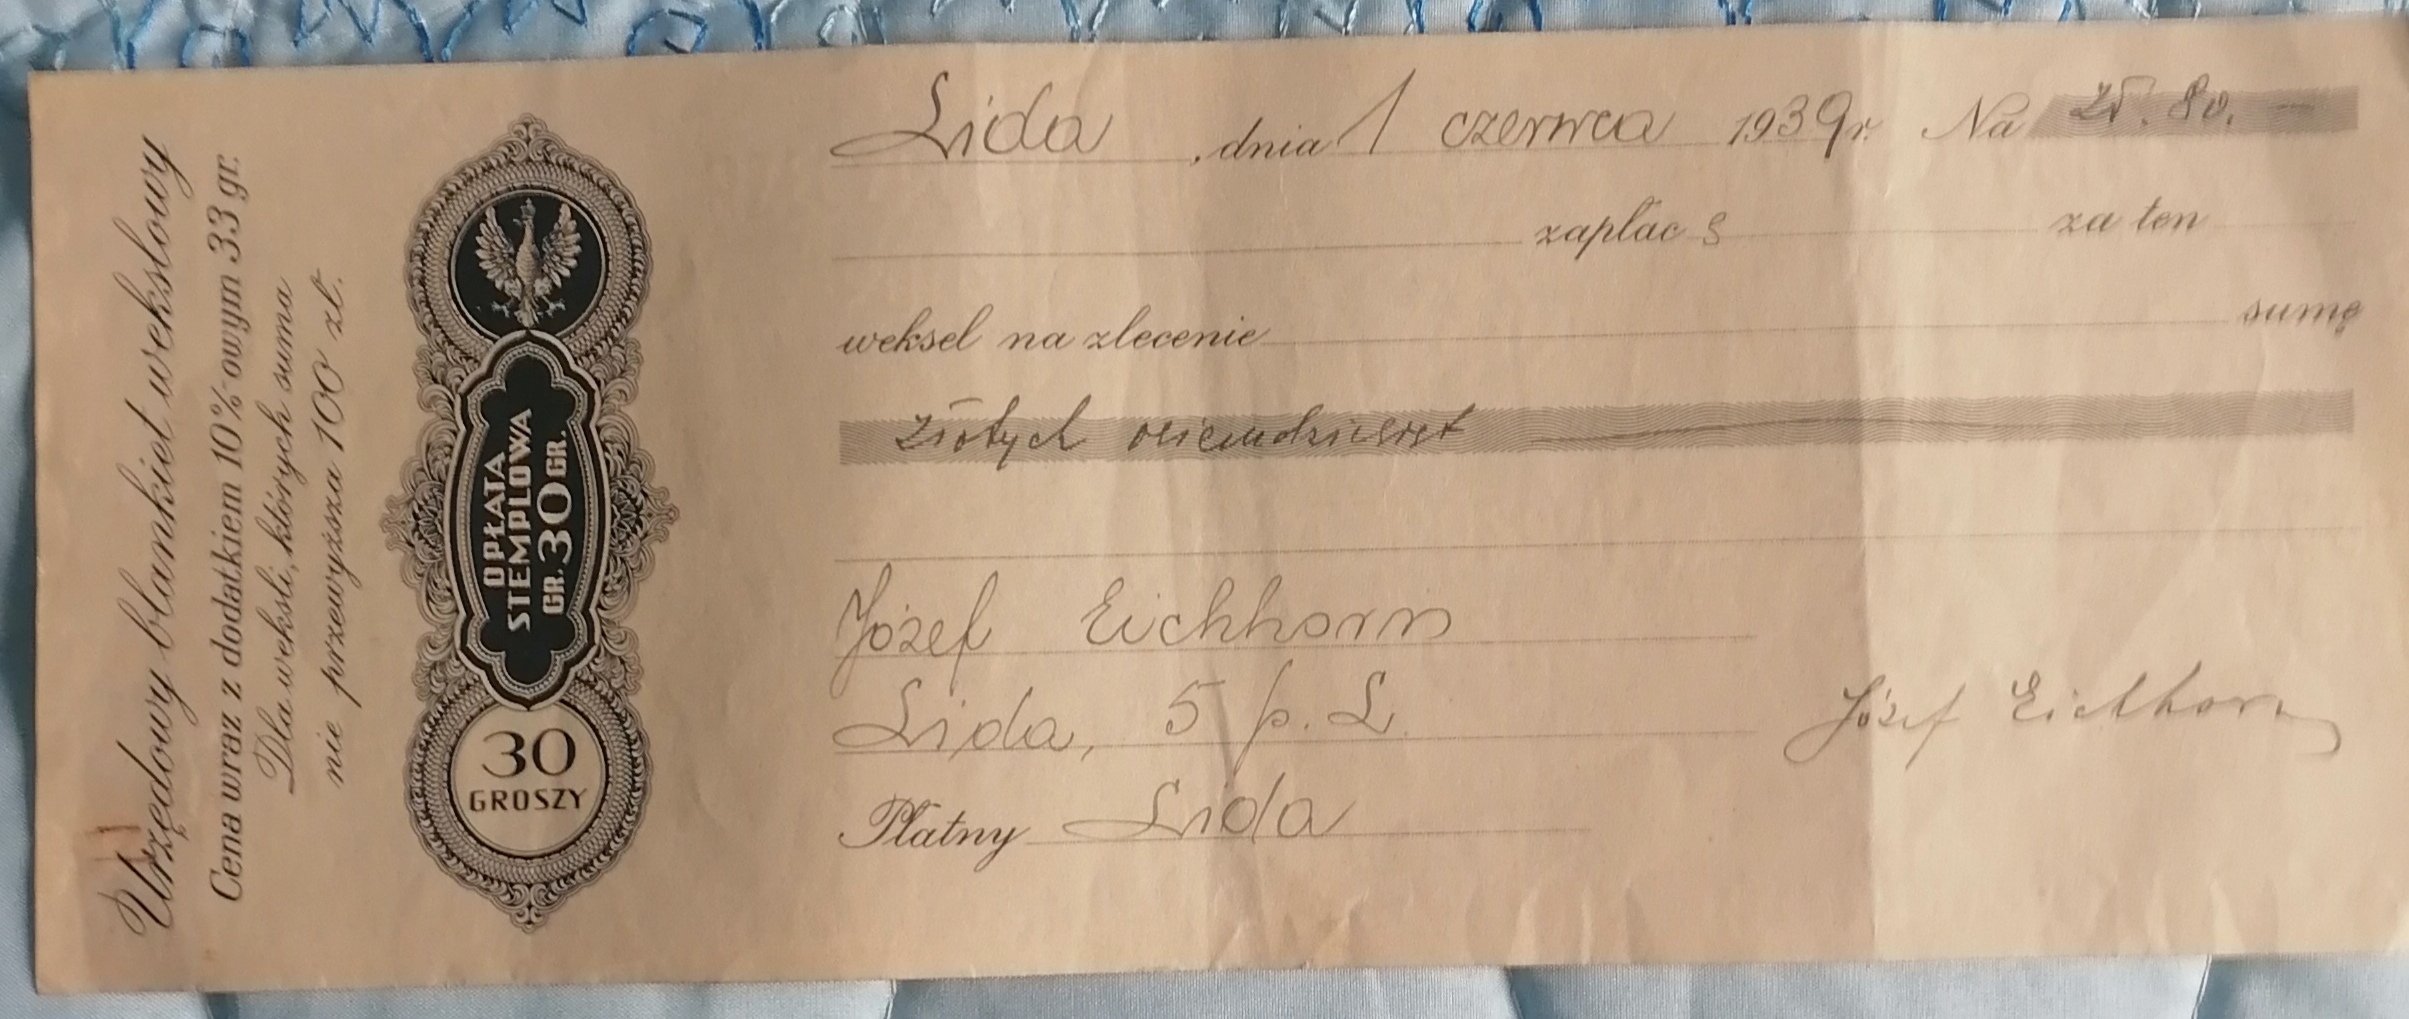 Urzędowy blankiet wekslowy
Cena wraz z dodatkiem 10%-owym 33 gr.
Dla weksli, których suma
nie przewyższa 100 zł.
OPŁATA
STEMPLOWA
GR. 30 GR.
30
GROSZY
Lida, dnia 1 czerwca 1939 r. Na Zł. 80. —
zapłac ę za ten
weksel na zlecenie sumę
złotych osiemdziesiąt —
Józef Eichhorn
Lida, 5 p. L.
Józef Eichhorn
Płatny Lida